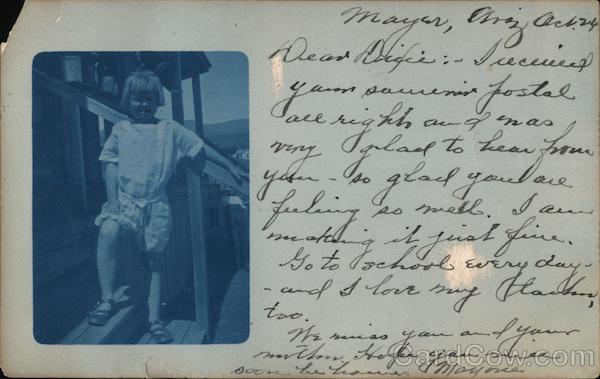 Mayer, Ariz Oct. 24
Dear Dixie:- I received
your souvenir postal
all right and was
very glad to hear from
you - so glad you are
feeling so well. I am
making it just fine.
Go to school every day-
- and I love my teacher,
too.
We miss you and your
mother, Hope you will
soon be home. Marjorie
CardCow.com